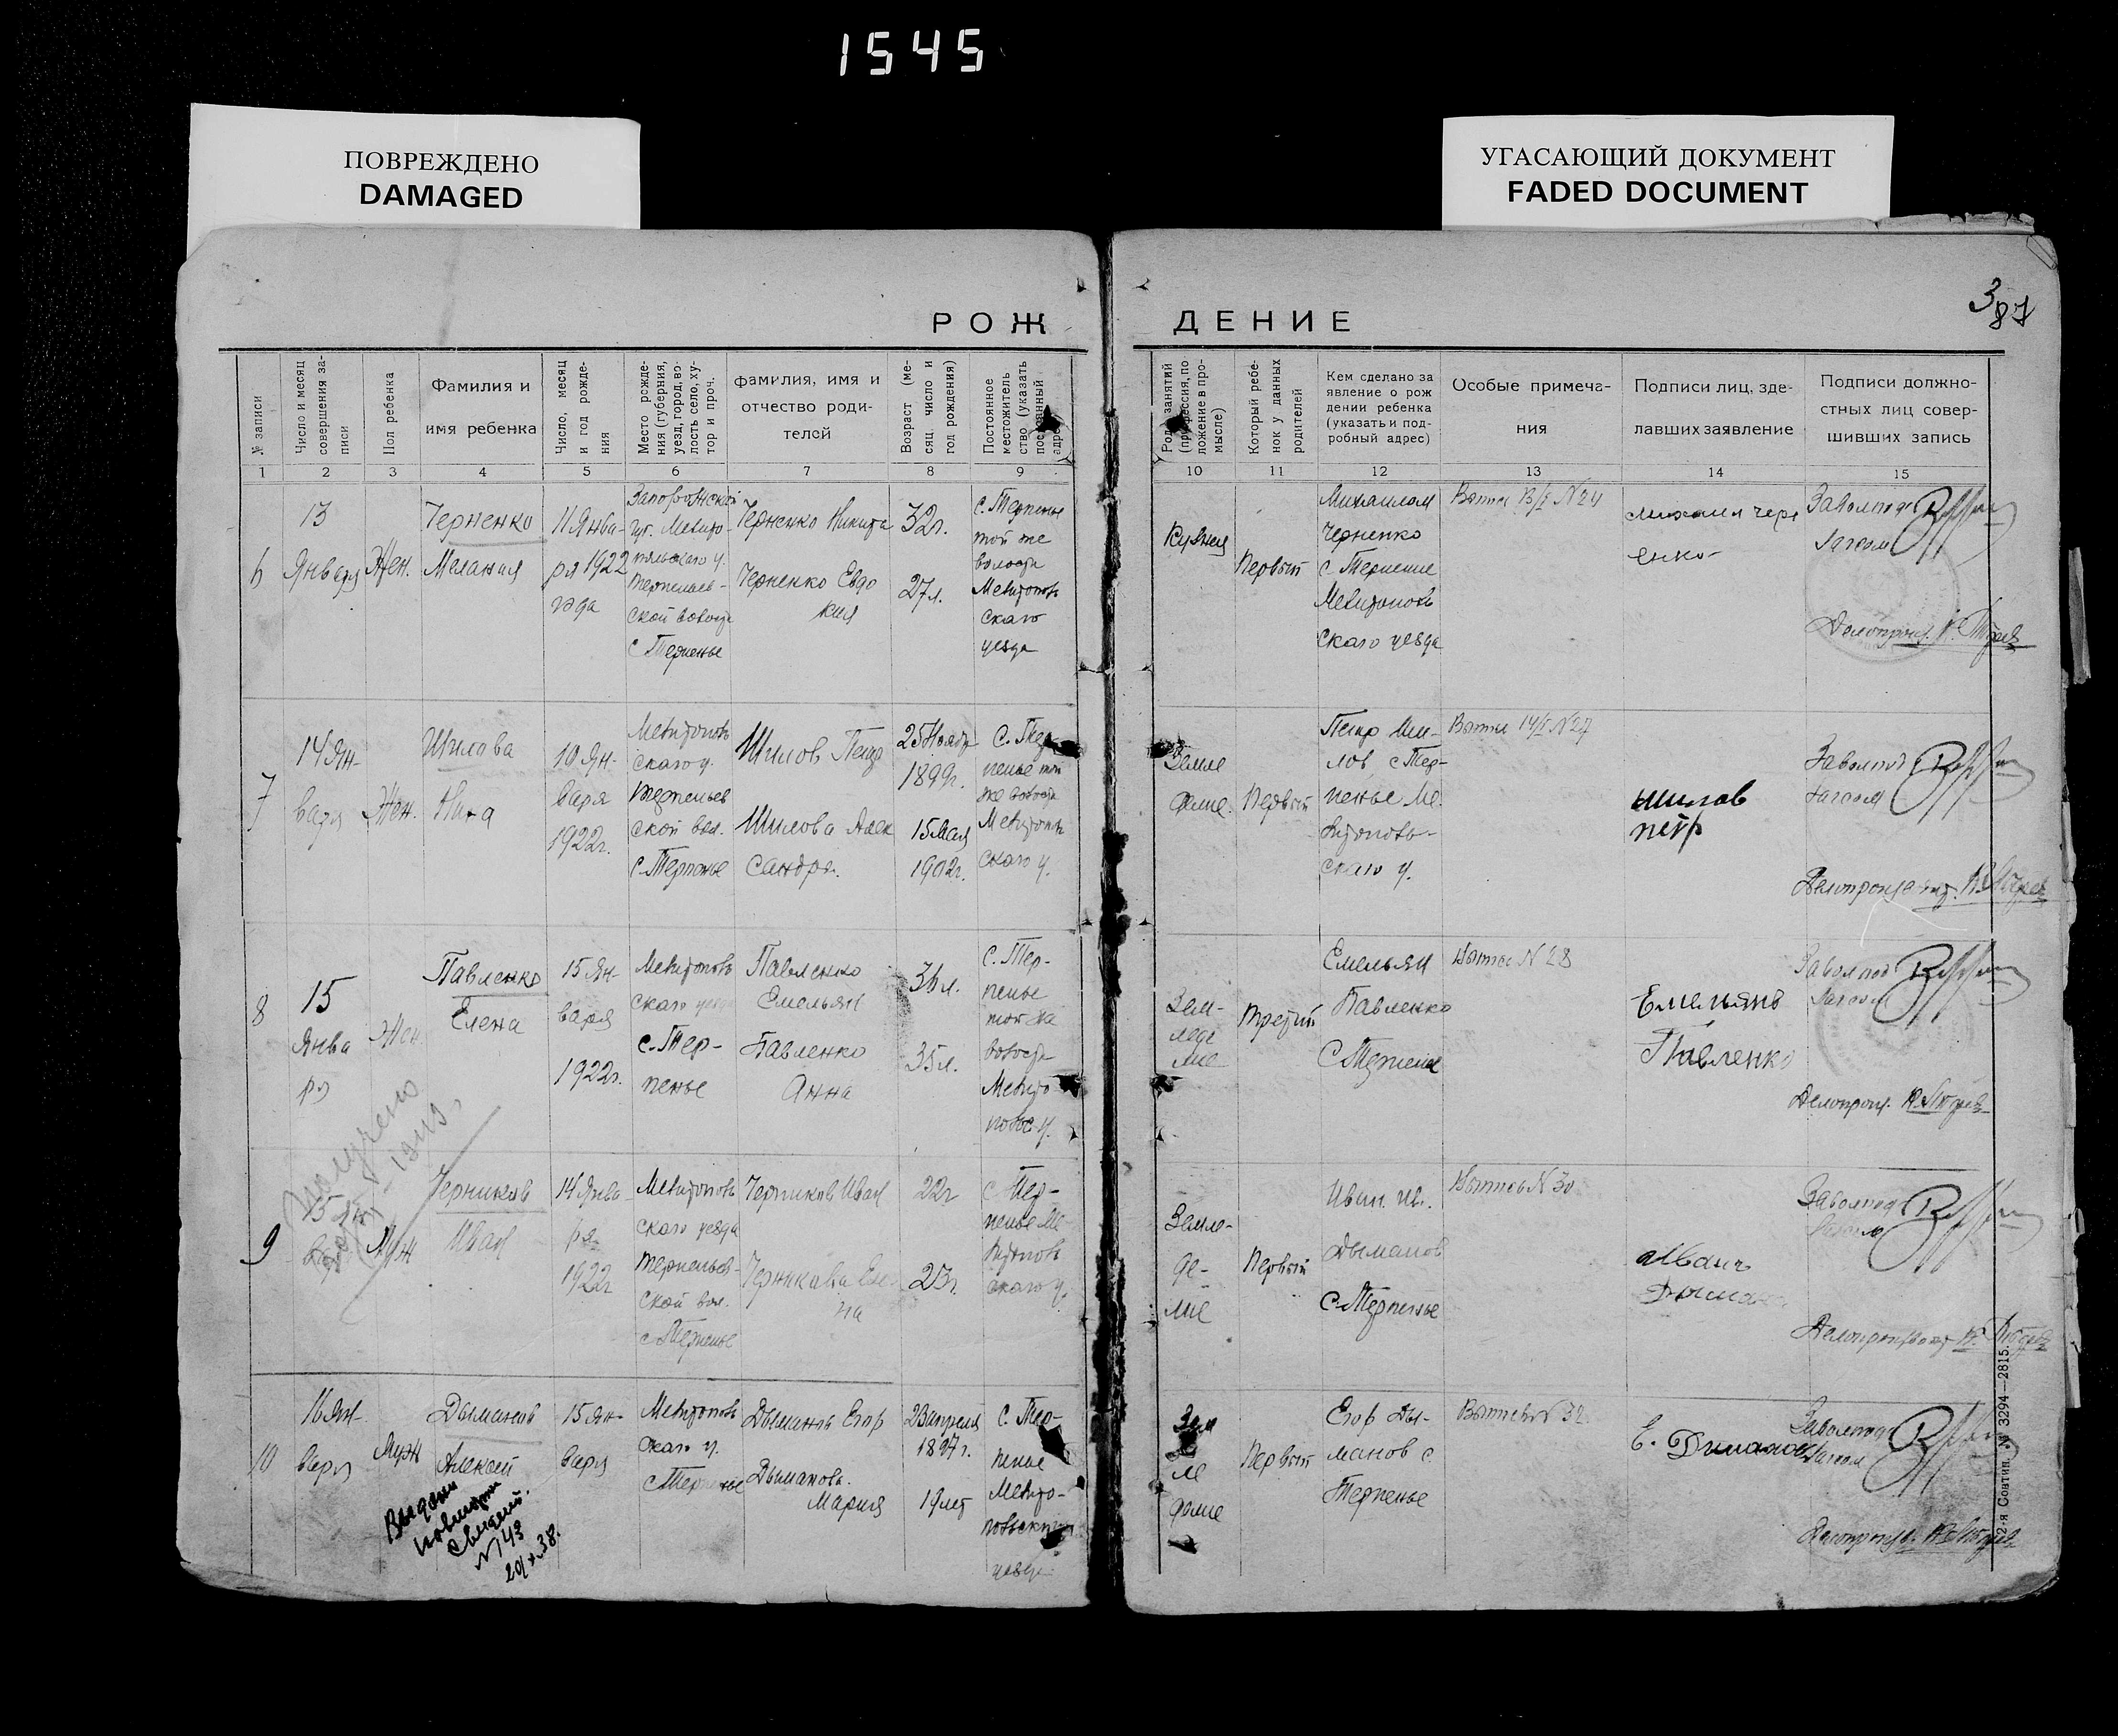 1545
ПОВРЕЖДЕНО
DAMAGED
УГАСАЮЩИЙ ДОКУМЕНТ
FADED DOCUMENT
387
РОЖДЕНИЕ
№ записи
Число и месяц совершения записи
Пол ребенка
Фамилия и
имя ребенка
Число, месяц
и год рожде-
ния
Место рожде-
ния (губерния,
уезд, город, во-
лость село, ху-
тор и проч.
фамилия, имя и
отчество роди-
телей
Возраст (ме-
сяц число и
год рождения)
Постоянное
местожитель
ство (указать
адрес
Род занятий
положение в про-
мысле)
Который ребе-
нок у данных
родителей
Кем сделано за
явление о рож
дении ребенка
(указать и под-
робный адрес)
Особые примеча-
ния
Подписи лиц, зде-
лавших заявление
Подписи должно-
стных лиц совер-
шивших запись
1 2 3 4 5 6 7 8 9 10 11 12 13 14 15
6
13
Января
Жен.
Черненко
Мелания
11 Янва-
ря 1922
года
Запорожской
гуг. Мелито-
польскаго у.
Терпеньев-
ской волости
с Терпенье
Черненко Никита
Черненко Евдо
кия
32г.
27л.
с. Терпенье
той же
волости
Мелитополь
скаго
уезда
Первый
Михаилом
Черненко
с Терпение
Мелитополь
скаго уезда
В/I N 24
михаил чере
енко
Завполпод
Загсом
Делопроиз.
7
14 Ян-
варя
Жен.
Шилова
Нина
10 Ян-
варя
1922г.
Мелитополь
скаго у.
Терпеньев
ской вол.
с. Терпенье
Шилов Петр
Шилова Алек
сандра.
25 Ноября
1899г.
15 Мая
1902г.
с. Тер-
пенье той
же волости
Мелитополь
скаго у.
Земле
делие.
Первый
Петр Ши-
лов с Тер-
пенье Ме-
литополь-
скаго у.
14/I N 27
шилов
петр
Завполпод
Загсом
8
15
Янва
ря
Жен
Павленко
Елена
15 Ян-
варя
1922г.
Мелитополь
скаго уезда
с. Тер-
пенье
Павленко
Емельян
Павленко
Анна
36л.
35л.
с. Тер-
пенье
той же
волости
Мелито
польс. у.
Зем-
леде
лие
Третий
Емельян
Павленко
с Терпенье
N 28
Емельянъ
Павленко
Завполпод
Загсом
Делопроиз.
9
15 Ян
варя
Муж
Черников
Иван
14 Янва-
ря
1922г
Мелитополь
скаго уезда
Терпеньев-
ской вол.
с Терпенье
Черников Иван
Черникова Еле-
на
22г
23г.
с. Тер-
пенье Ме-
литополь
скаго у.
Земле-
де-
лие
Первый
Иван. Ив.
Дыманов
с. Терпенье
N 30
Иванъ
Завполпод
Загсом
10
16 Ян-
варя
Муж
Дыманов
Алексей
15 Ян-
варя
Мелитополь
скаго у.
с Терпенье
Дыманов Егор
Дыманова.
Мария
23 апреля
1897г.
19 лет
с. Тер-
пенье
Мелито-
польскаго
уезда
Первый
Егор Ды-
манов с.
Терпенье
N 32
Е. Дыманов
Завполпод
Загсом
Выдано
N 143
2-я Совтип. № 3294—2815.